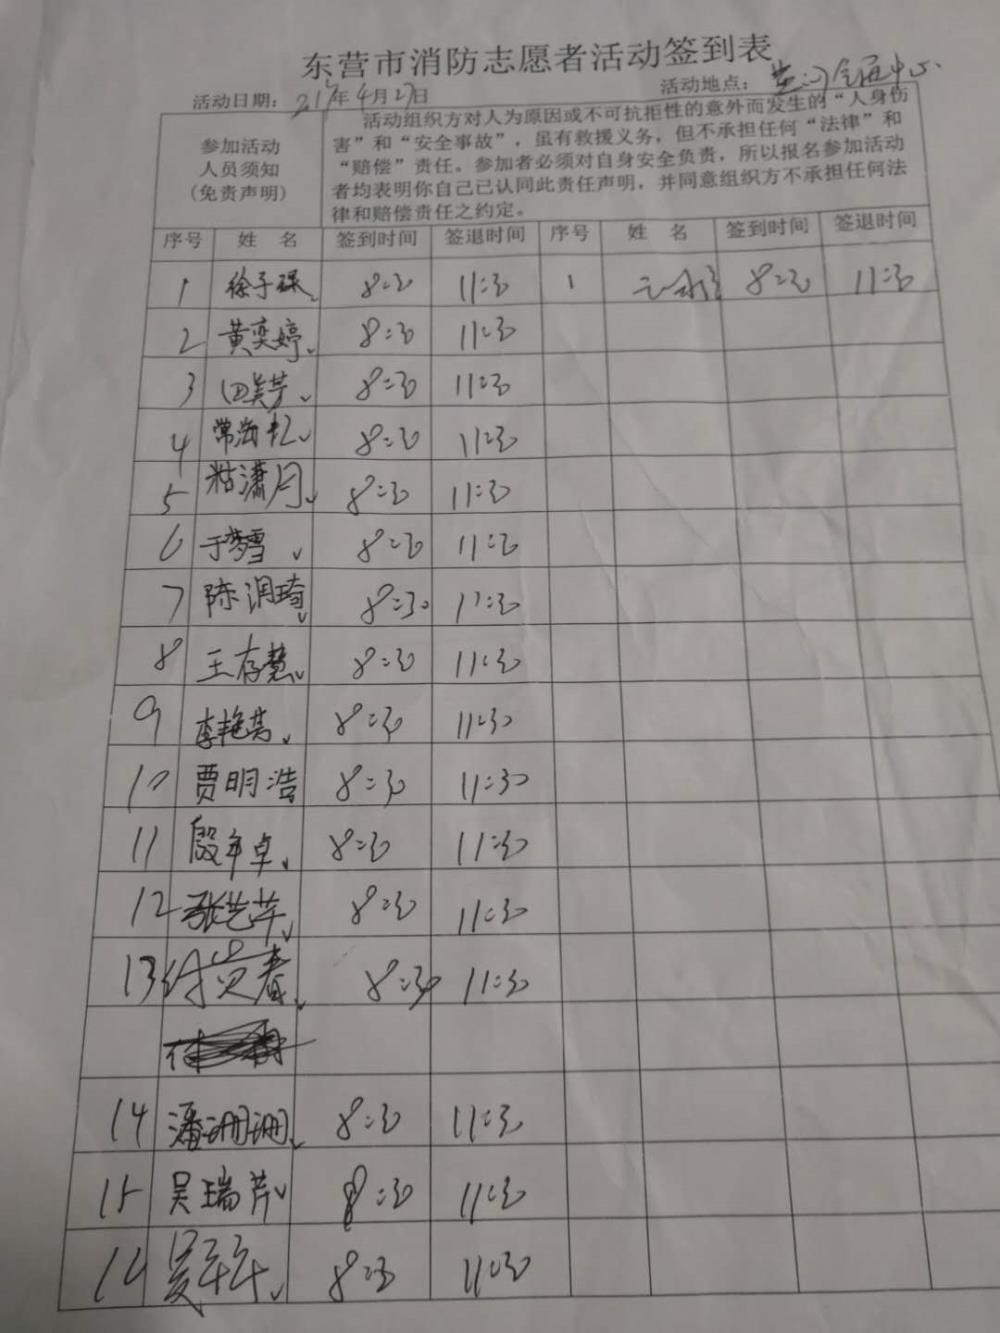 东营市消防志愿者活动签到表
活动日期：年4月27日 活动地点：
参加活动
人员须知
(免责声明)
活动组织方对人为原因或不可抗拒性的意外而发生的“人身伤
害”和“安全事故”，虽有救援义务，但不承担任何“法律”和
“赔偿”责任。参加者必须对自身安全负责，所以报名参加活动
者均表明你自己已认同此责任声明，并同意组织方不承担任何法
律和赔偿责任之约定。
序号 姓 名 签到时间 签退时间 序号 姓 名 签到时间 签退时间
1 徐子禄 8:30 11:30 1 8:30 11:30
2 黄奕婷 8:30 11:30
3 田美芳 8:30 11:30
4 常海 8:30 11:30
5 潇月 8:30 11:30
6 于梦雪 8:30 11:30
7 陈润琦 8:30 11:30
8 王存慧 8:30 11:30
9 李艳芳 8:30 11:30
10 贾明浩 8:30 11:30
11 殷年卓 8:30 11:30
12 张艺萍 8:30 11:30
13 付贵春 8:30 11:30
14 潘珊珊 8:30 11:30
15 吴瑞芹 8:30 11:30
16 8:30 11:30